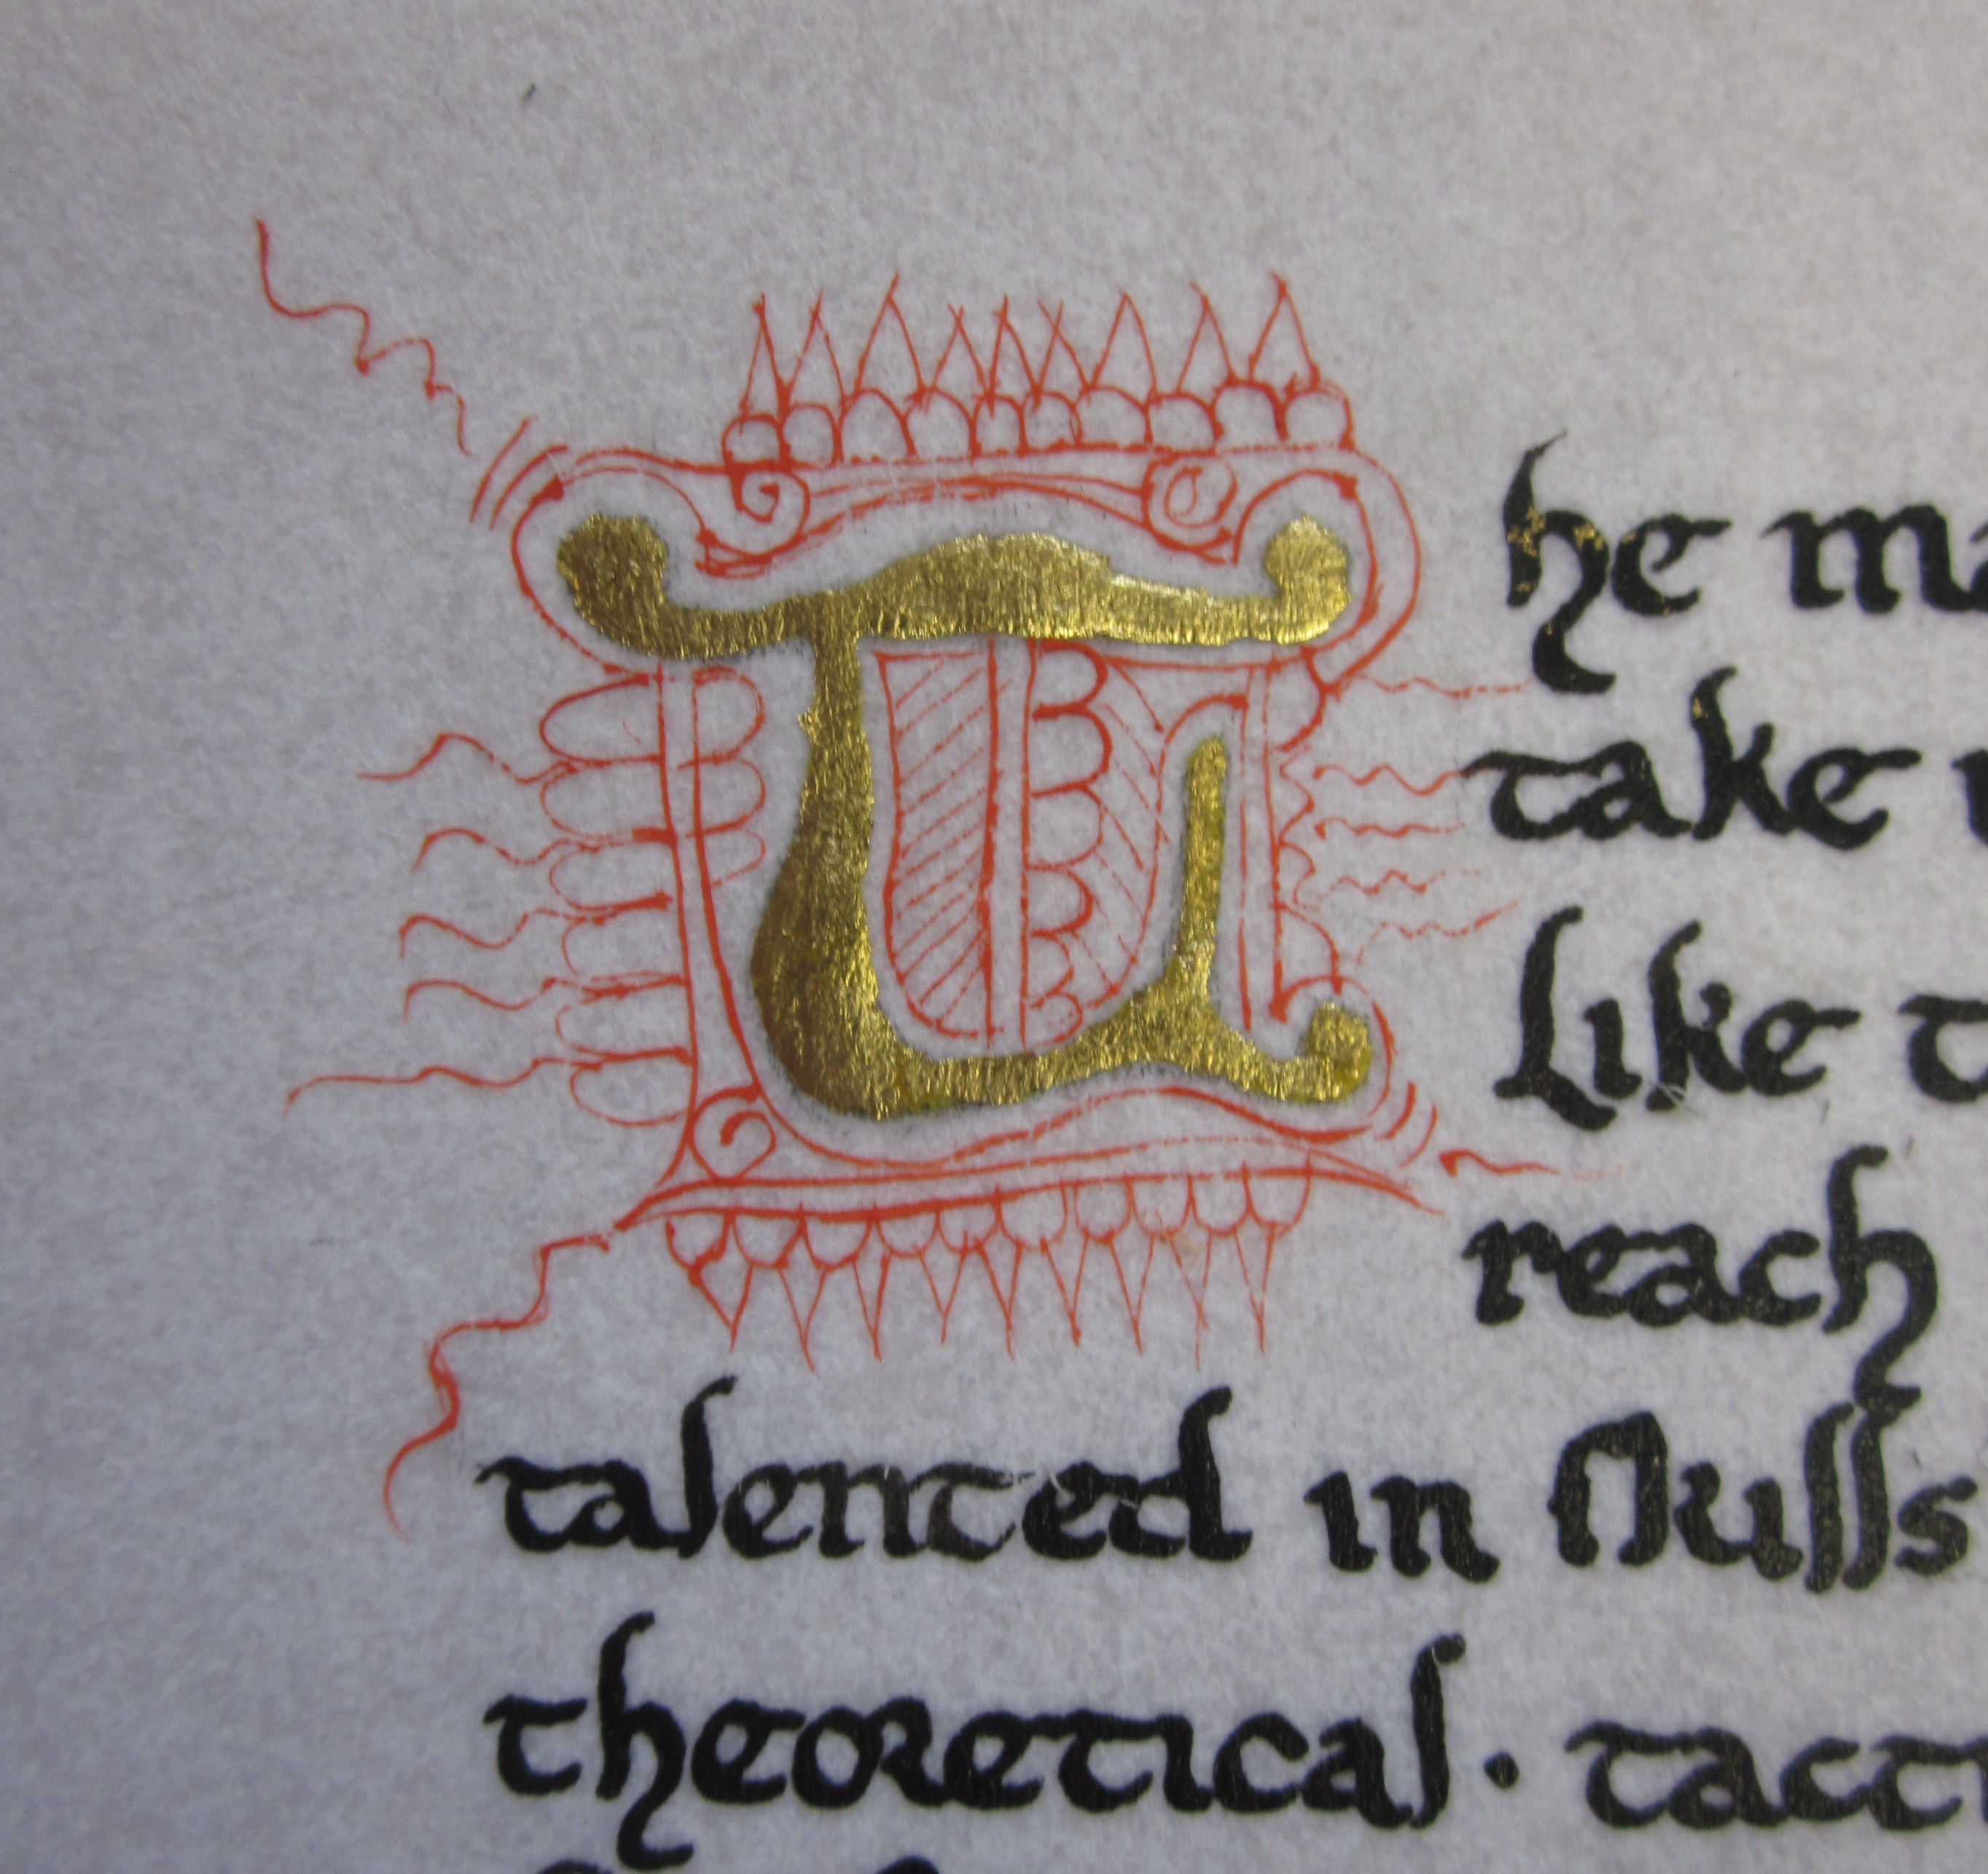 The ma
take
like t
reach
talented in skills
theoretical · tacti